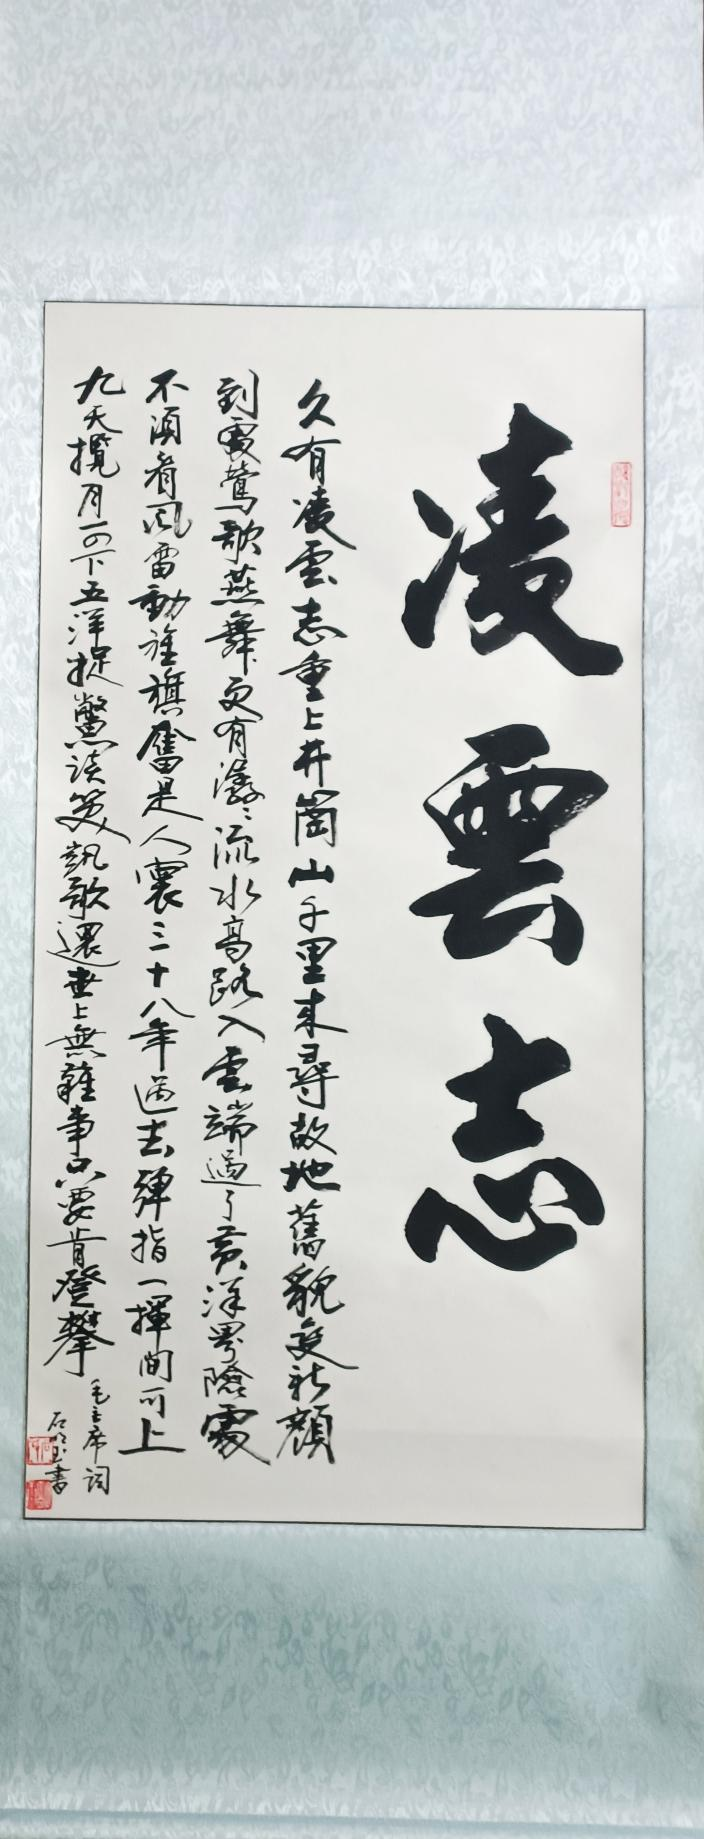 凌雲志
久有凌雲志重上井崗山千里来尋故地舊貌变新顔
到處鶯歌燕舞更有潺〻流水高路入雲端過了黄洋界險處
不須看風雷動旌旗奮是人寰三十八年過去弹指一揮間可上
九天攬月可下五洋捉鱉談笑凱歌還世上無難事只要肯登攀
毛主席词
石玉書